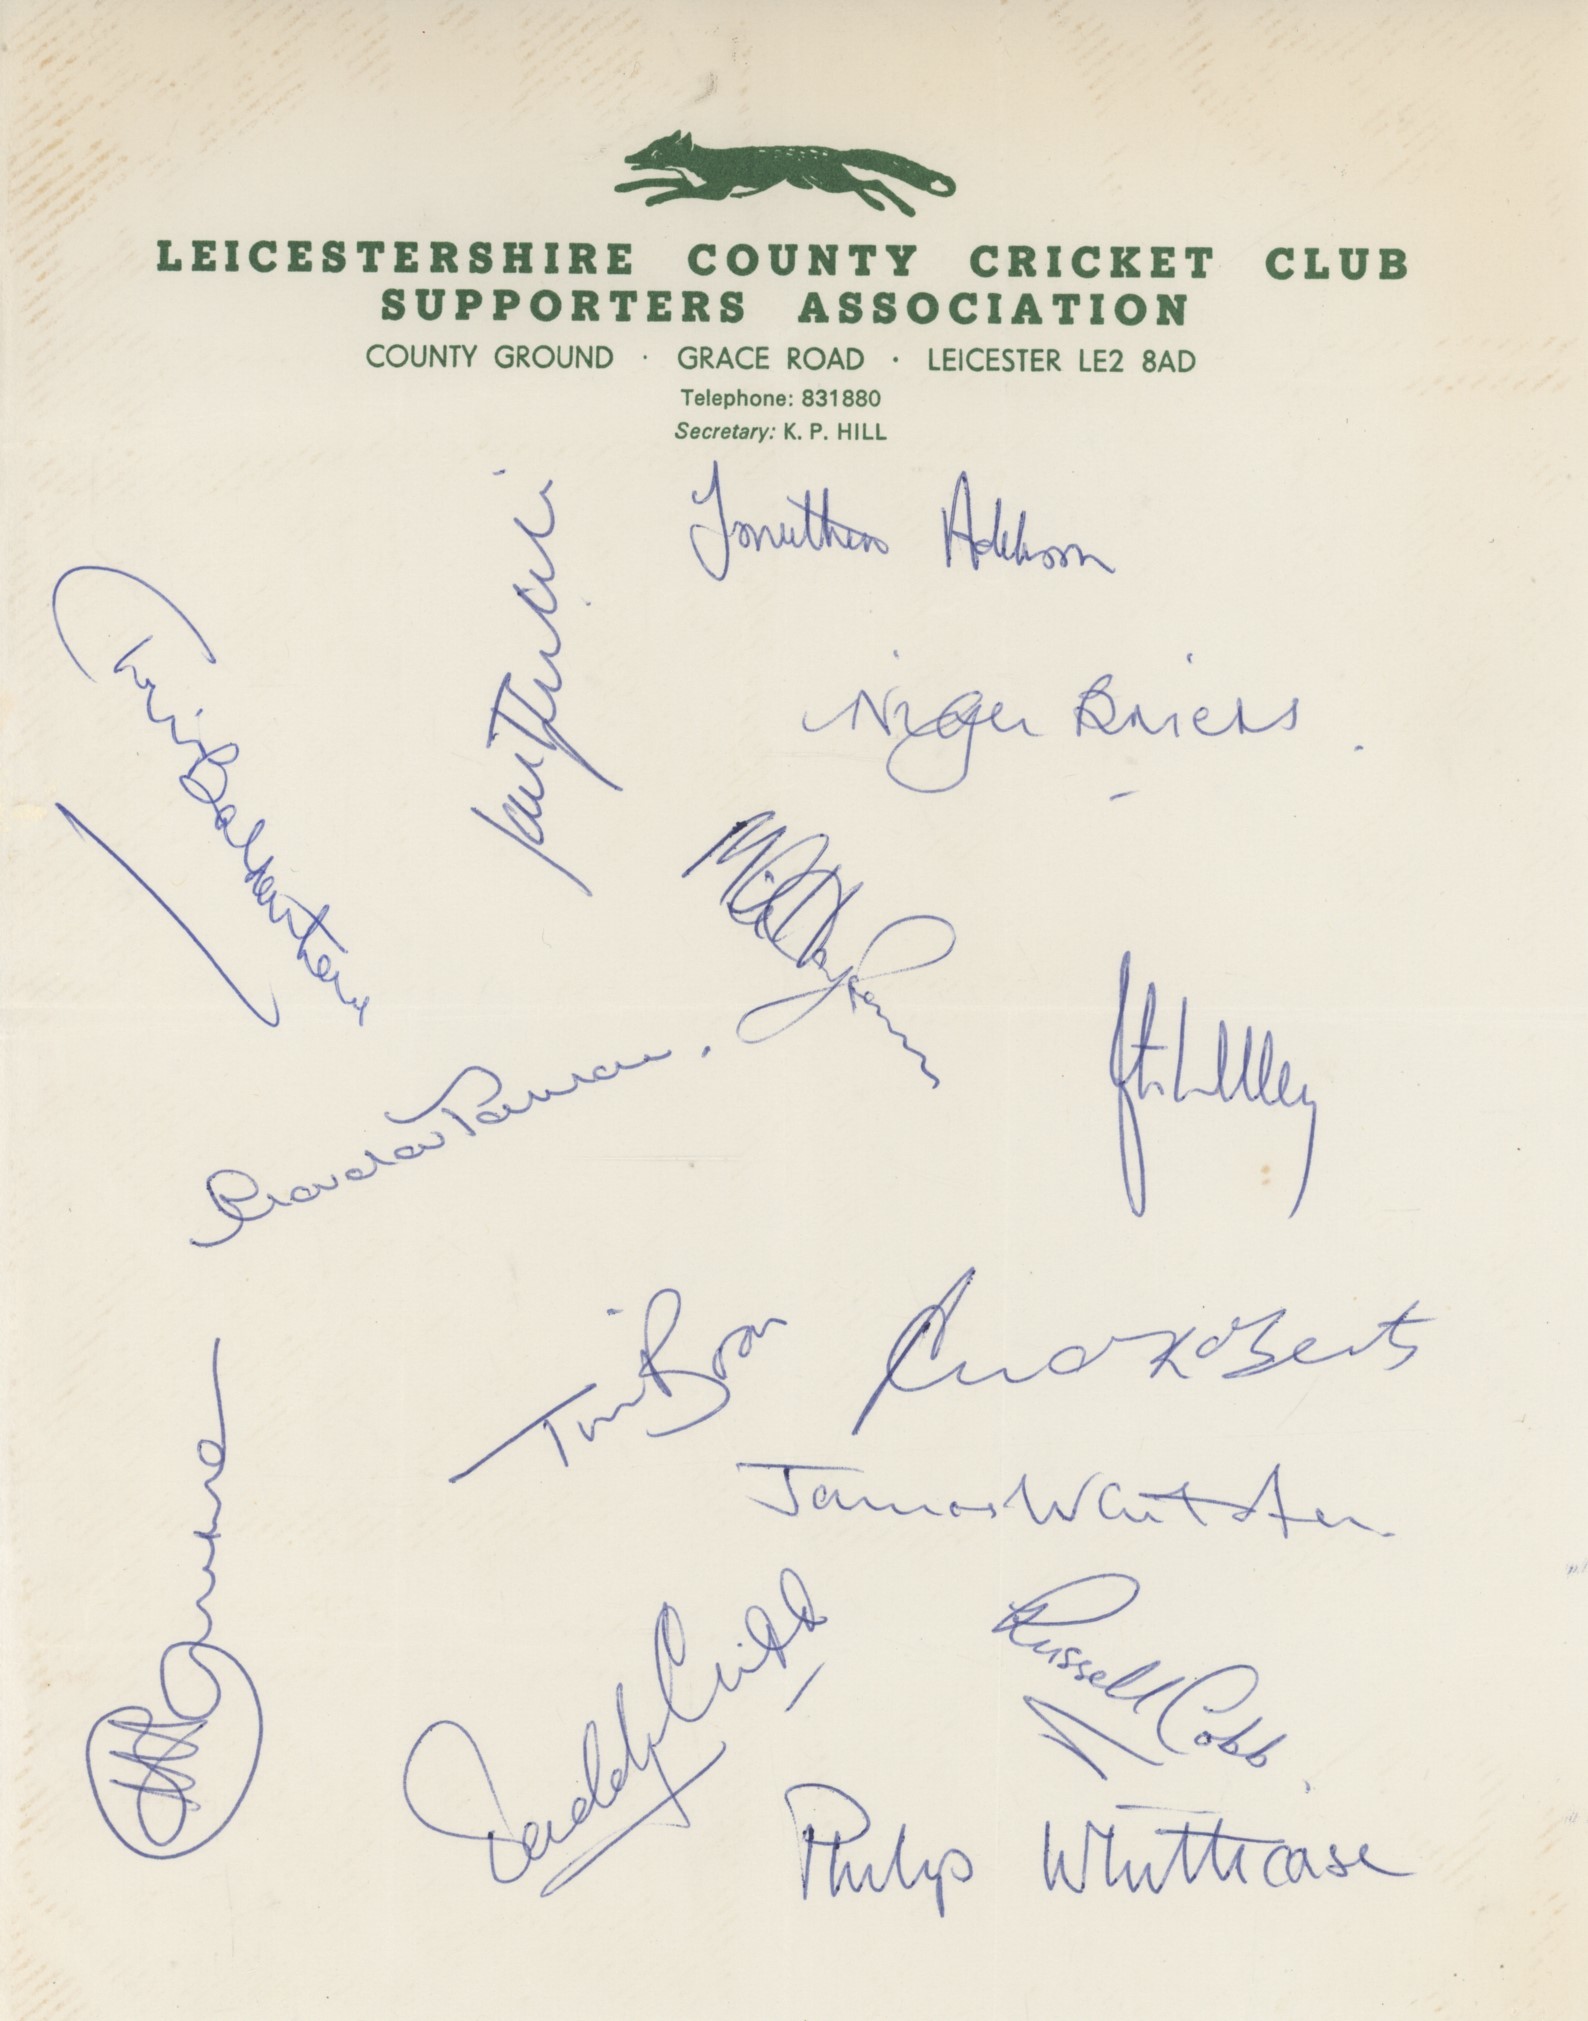 LEICESTERSHIRE COUNTY CRICKET CLUB
SUPPORTERS ASSOCIATION
COUNTY GROUND · GRACE ROAD · LEICESTER LE2 8AD
Telephone: 831880
Secretary: K. P. HILL
Jonathan Addison
Nigel Briers.
Chris Balderstone
Gordon Parsons.
Tim Boon
Andy Roberts
James Whitaker.
Paddy Clift
Russell Cobb.
Phillip Whitticase